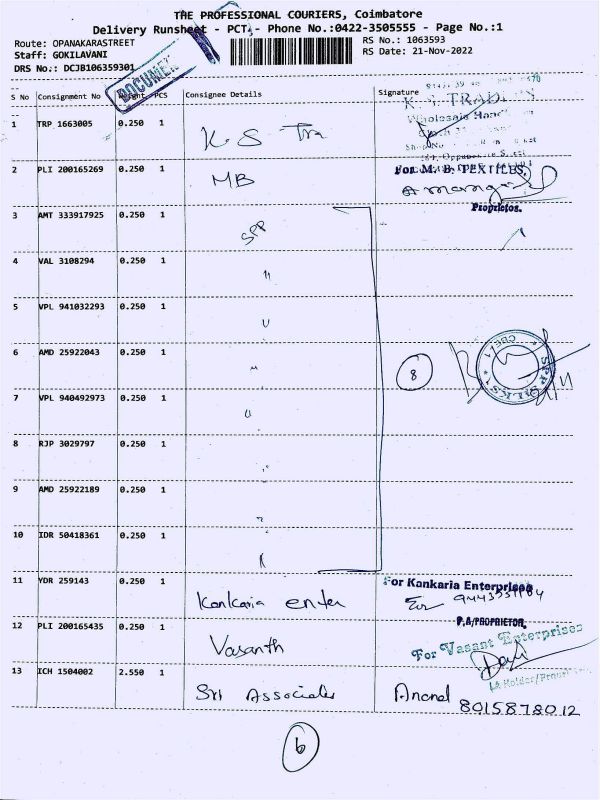 THE PROFESSIONAL COURIERS, Coimbatore
Delivery Runsheet - PCT - Phone No.:0422-3505555 - Page No.:1
Route: OPANAKARASTREET
RS No.: 1063593
Staff: GOKILAVANI
RS Date: 21-Nov-2022
DRS No.: DCJB106359301
DOCUMENT
S No Consignment No PCS Consignee Details Signature
1 TRP 1663005 0.250 1 K S Tra
K. S. TRAD
Wholesale
2 PLI 200165269 0.250 1 MB
For M. B. TEXTILES,
Proprietor.
3 AMT 333917925 0.250 1 SPP
4 VAL 3108294 0.250 1 "
5 VPL 941032293 0.250 1
6 AMD 25922043 0.250 1
8
CBE-1 * SPP SILKS *
7 VPL 940492973 0.250 1
8 RJP 3029797 0.250 1
9 AMD 25922189 0.250 1
10 IDR 50418361 0.250 1
11 YDR 259143 0.250 1 Kankaria enter
For Kankaria Enterprises
P.A/PROPRIETOR.
12 PLI 200165435 0.250 1 Vasanth
For Vasant Enterprises
13 ICH 1504002 2.550 1 Sri Associates Anand
8015878012
6